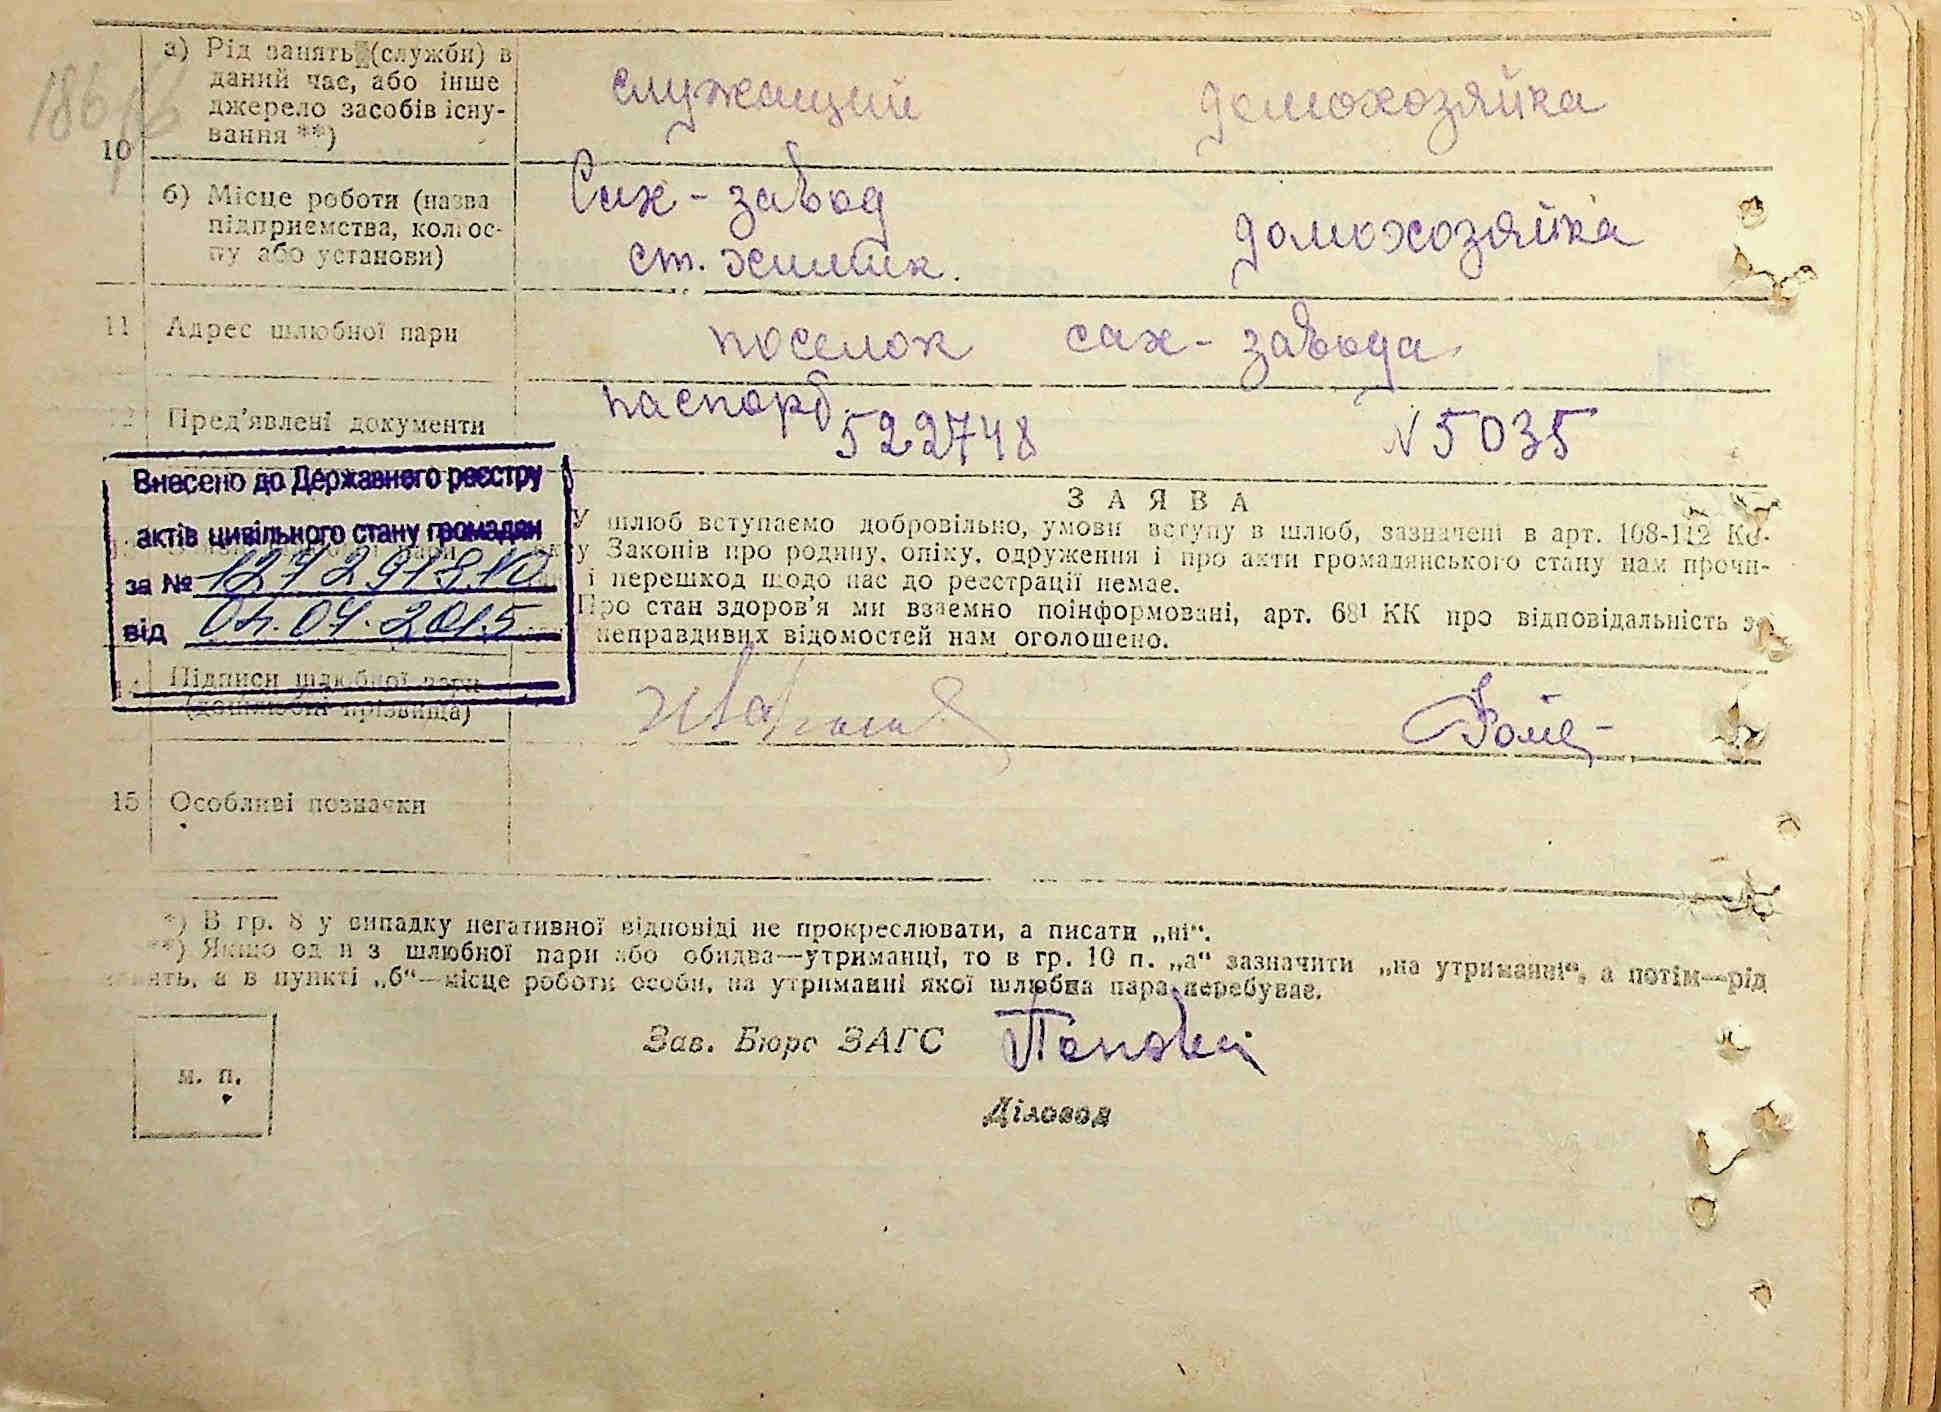 10
а) Рід занять (служби) в
даний час, або інше
джерело засобів існу-
вання **)
служащий
домохозяйка
б) Місце роботи (назва
підприємства, колгос-
пу або установи)
Сах-завод
ст. химик.
домохозяйка
11
Адрес шлюбної пари
поселок сах-завода
12
Пред'явлені документи
паспорт
522748
N 5035
Внесено до Державного реєстру
актів цивільного стану громадян
за №
від
ЗАЯВА
У шлюб вступаємо добровільно, умови вступу в шлюб, зазначені в арт. 108-112 Ко-
у Законів про родину, опіку, одруження і про акти громадянського стану нам прочи-
і перешкод щодо нас до реєстрації немає.
Про стан здоров'я ми взаємно поінформовані, арт. 68¹ КК про відповідальність за
неправдивих відомостей нам оголошено.
14
Підписи шлюбної пари
(дошлюбні прізвища)
15
Особливі позначки
*) В гр. 8 у випадку негативної відповіді не прокреслювати, а писати „ні“.
**) Якщо один з шлюбної пари або обидва—утриманці, то в гр. 10 п. „а“ зазначити „на утриманні“, а потім—рід
занять, а в пункті „б“—місце роботи особи, на утриманні якої шлюбна пара перебуває.
м. п.
Зав. Бюро ЗАГС
Діловод